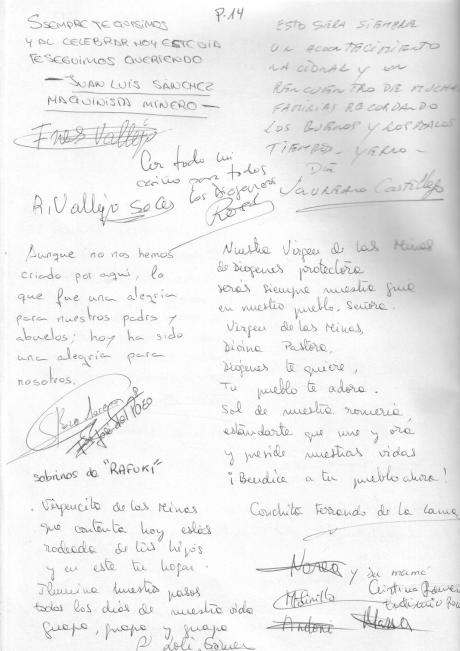 P.14
SIEMPRE TE QUISIMOS
Y AL CELEBRAR HOY ESTE DIA
TE SEGUIMOS QUERIENDO
— JUAN LUIS SÁNCHEZ
MAQUINISTA MINERO —
Ines Vallejo
Con todo mi
cariño para todos
los Diogeneros
R. Vallejo Soles
ESTO SERA SIEMPRE
UN ACONTECIMIENTO
NACIONAL Y UN
REENCUENTRO DE MUCHAS
FAMILIAS RECORDANDO
LOS BUENOS Y LOS MALOS
TIEMPOS
Laureano Castillejo
Aunque no nos hemos
criado por aquí, lo
que fue una alegría
para nuestros padres y
abuelos; hoy ha sido
una alegría para
nosotros.
sobrinos de "RAFUKI"
Nuestra Virgen de las Minas
de Diogenes protectora
serás siempre nuestra guia
en nuestro pueblo, Señora.
Virgen de las Minas,
Divina Pastora,
Diógenes te quiere,
Tu pueblo te adora.
Sol de nuestra romeria,
estandarte que une y ora
y preside nuestras vidas
¡Bendice a tu pueblo ahora!
Conchita Ferrando de la Lama
. Virgencita de las Minas
que contenta hoy estás
rodeada de tus hijos
y en este tu hogar.
Ilumina nuestro pasos
todos los dias de nuestra vida
Guapa, guapa y guapa
Loli Gómez
Nerea y su mamá
Cristina